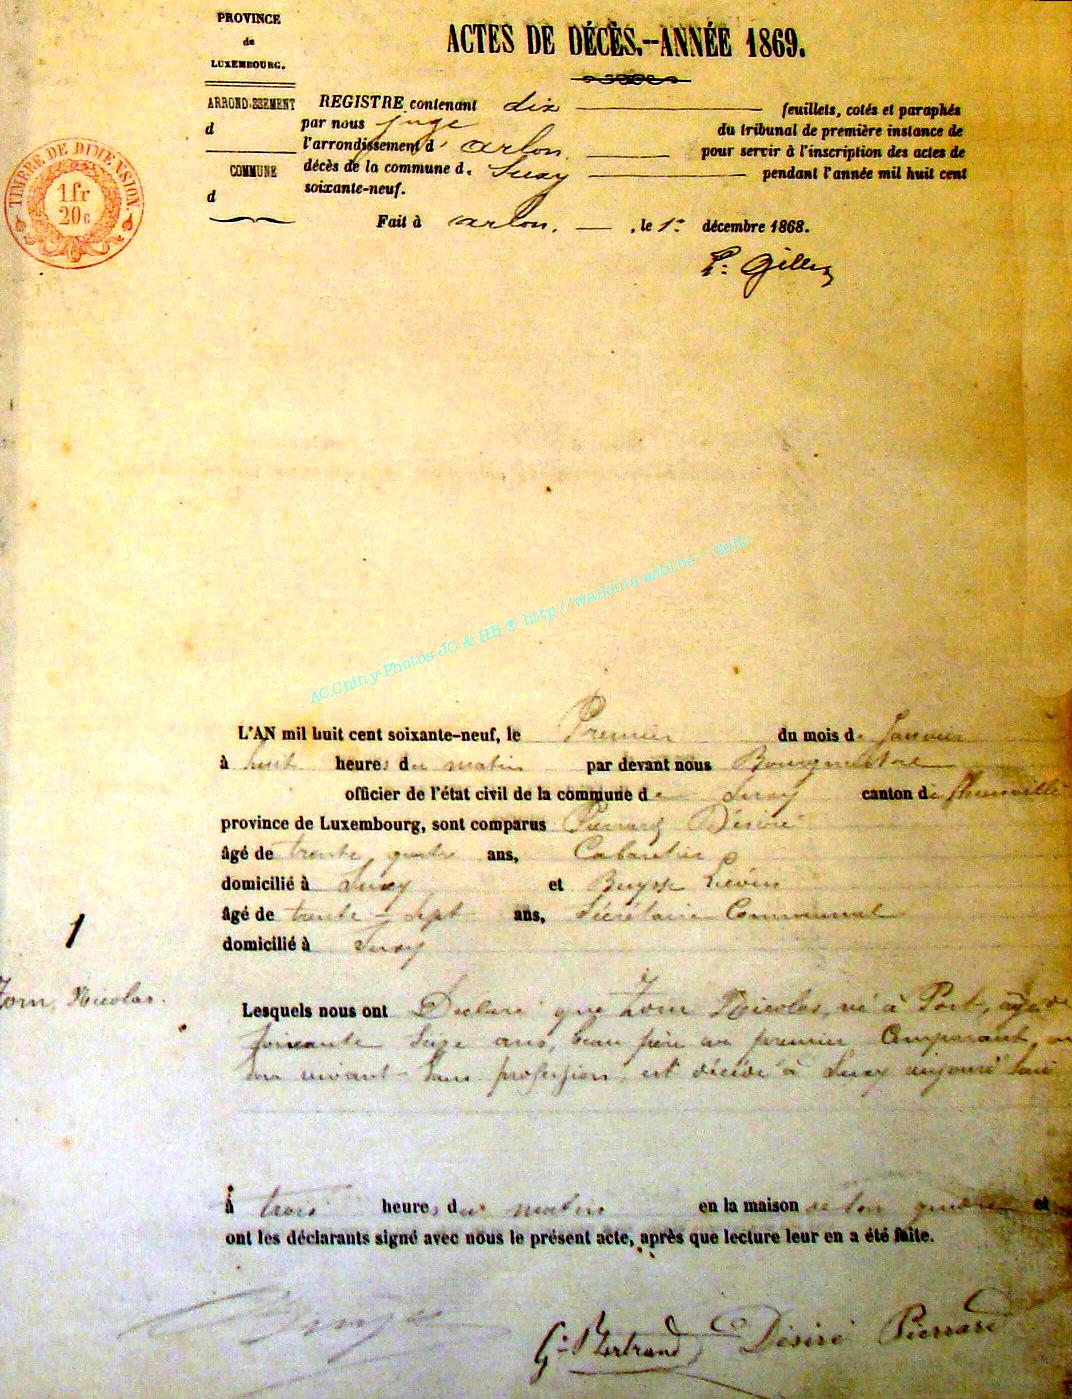 PROVINCE
de
LUXEMBOURG.
ACTES DE DÉCÈS.--ANNÉE 1869.
ARRONDISSEMENT
d
COMMUNE
d
REGISTRE contenant dix feuillets, cotés et paraphés
par nous juge du tribunal de première instance de
l'arrondissement d' Arlon pour servir à l'inscription des actes de
décès de la commune de Suxy pendant l'année mil huit cent
soixante-neuf.
Fait à Arlon, le 1er décembre 1868.
TIMBRE DE DIMENSION.
1 fr
20 c
AC.Chiny-Photos JC & HB ® http://wallonia-asbl.be - Géflo
L'AN mil huit cent soixante-neuf, le Premier du mois de Janvier
à huit heures du matin par devant nous Bourgmestre
officier de l'état civil de la commune de Suxy canton de
province de Luxembourg, sont comparus Pierrard Désiré
âgé de trente quatre ans, Cabaretier
domicilié à Suxy et Buysse Liévin
âgé de trente-sept ans, Sécrétaire Communal
domicilié à Suxy
1
Zorn, Nicolas.
Lesquels nous ont Declaré que Zorn Nicolas, né à âgé de
soixante seize ans, beau père au premier Comparant, en
son vivant sans profession, est décédé à Suxy aujourd'hui
à trois heures du matin en la maison de son gendre et
ont les déclarants signé avec nous le présent acte, après que lecture leur en a été faite.
G. Bertrand Désiré Pierrard